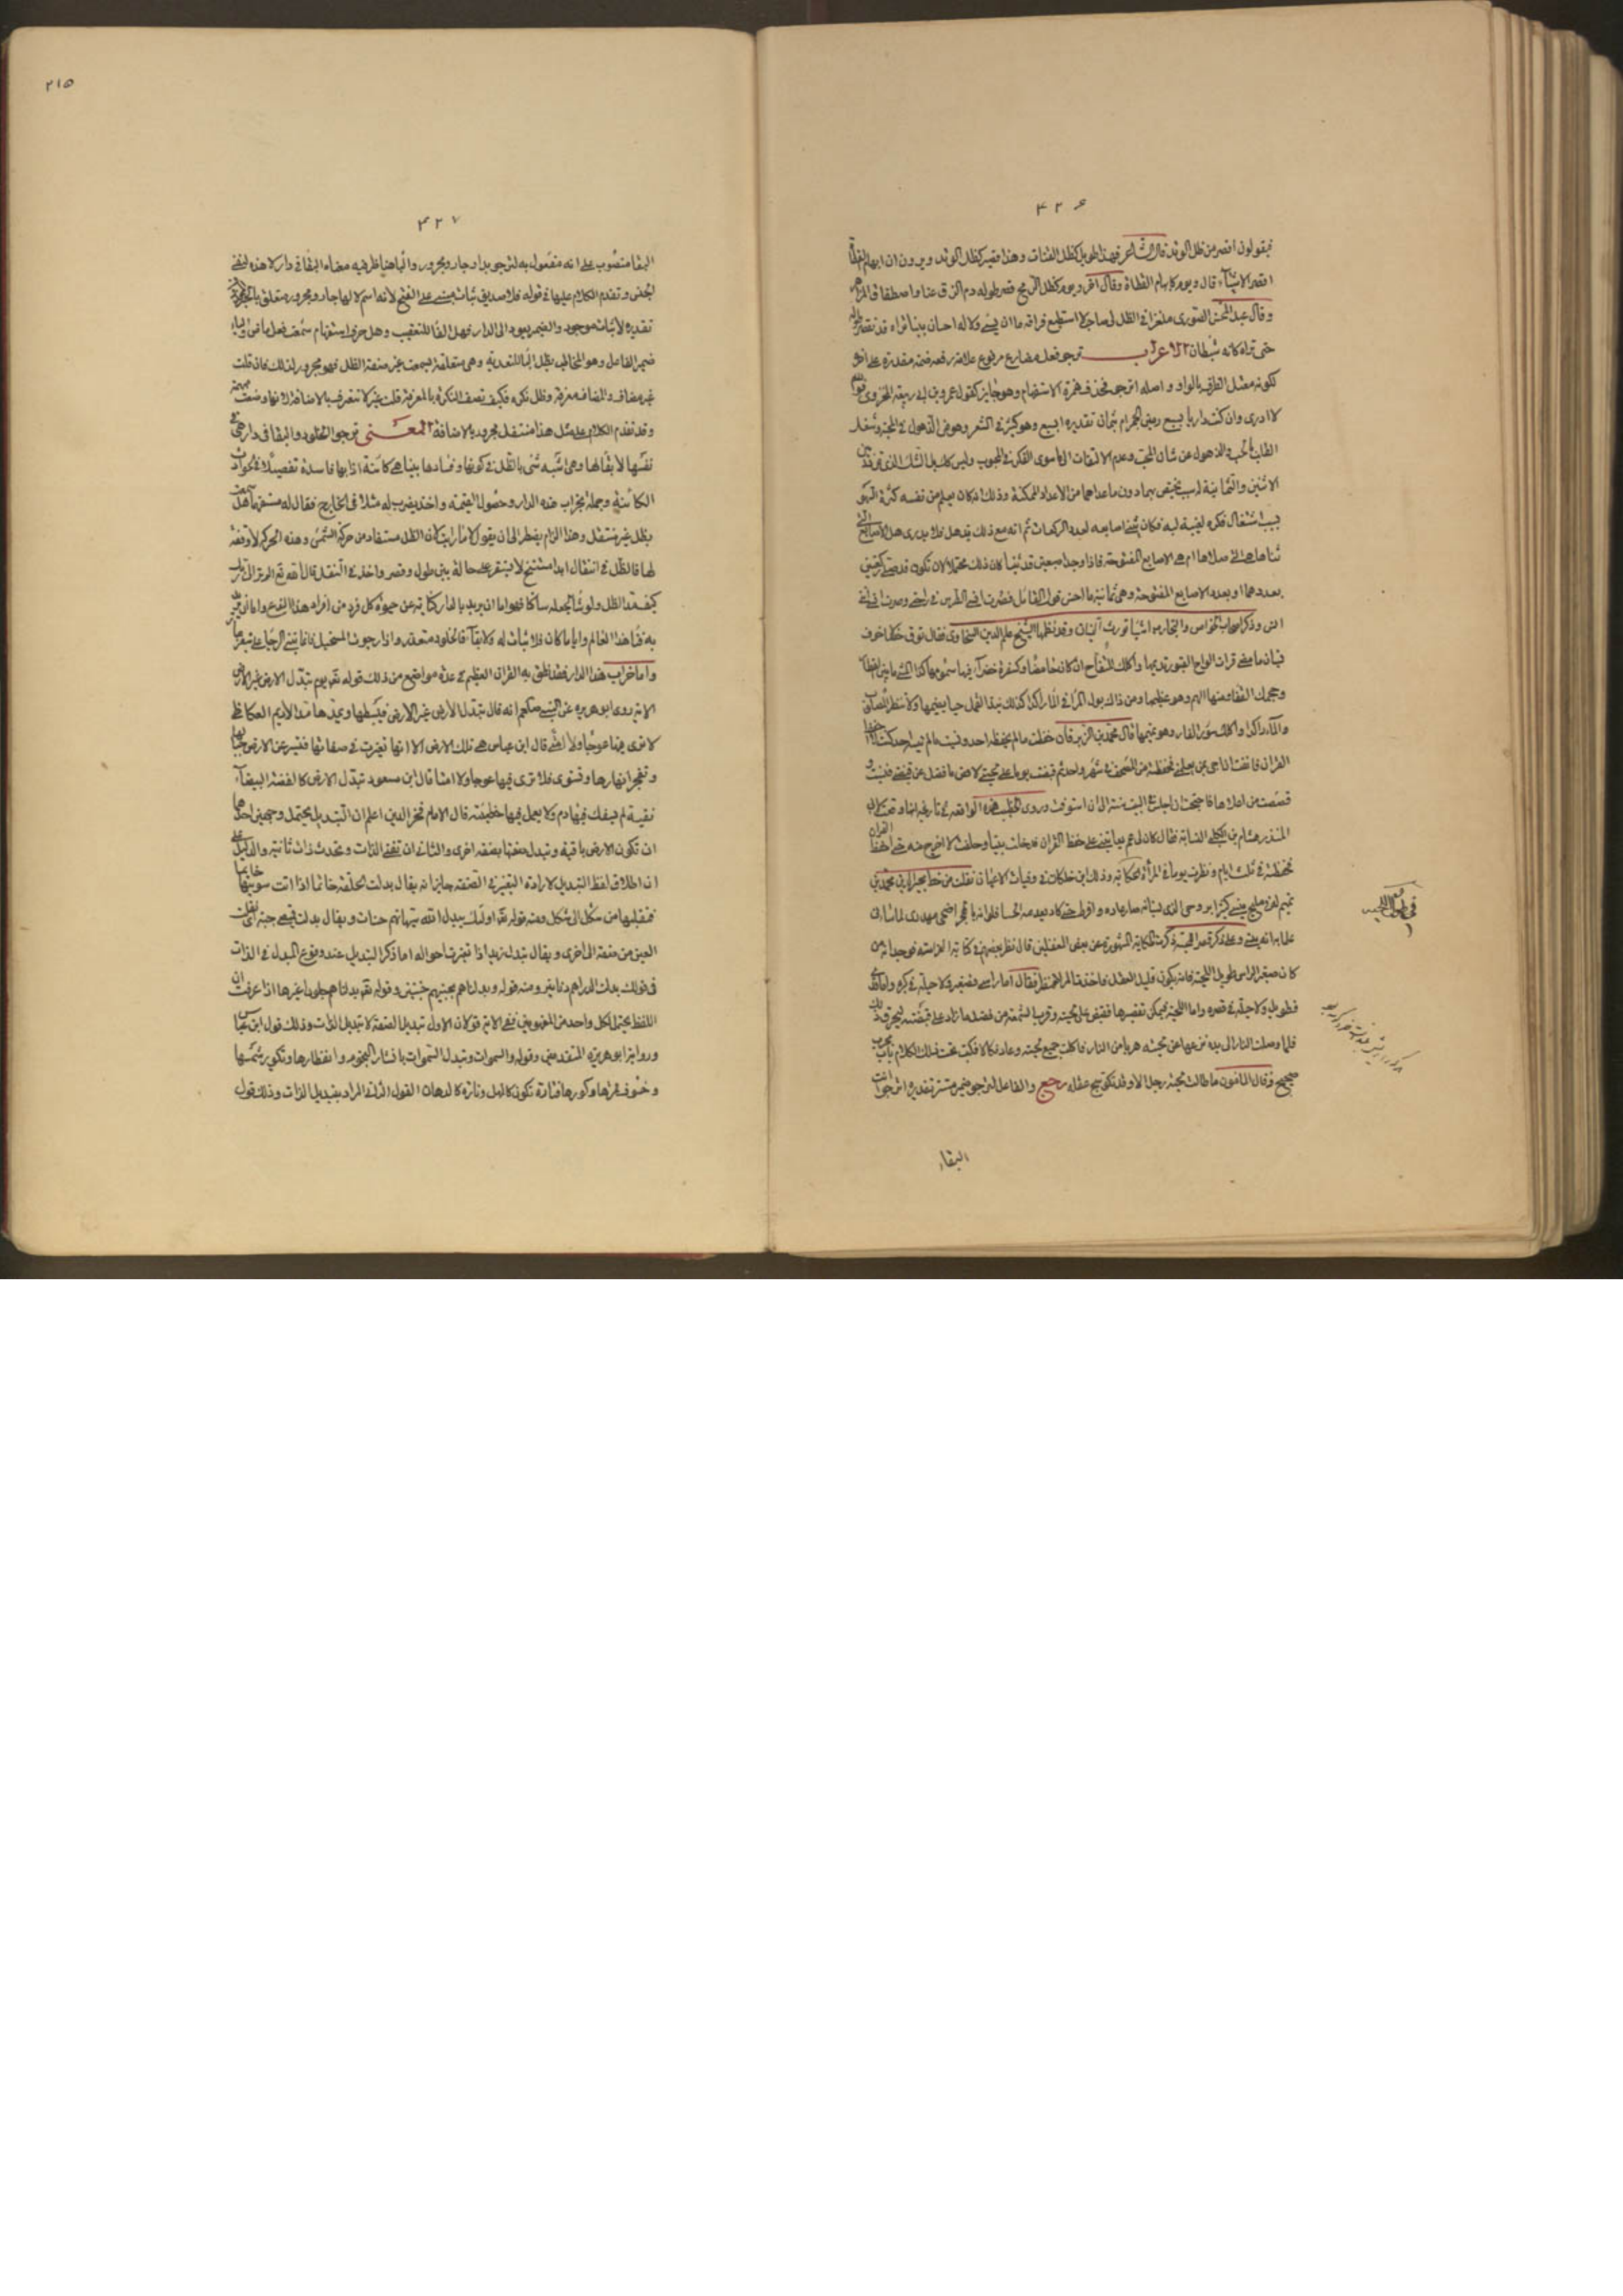 ٤٢٦
فيقولون اقصر من ظل الوتد قال الشاعر فهذا طويل كظل القناة وهذا قصير كظل الوتد ويرون ان ابهام القطا
اقصر الاشيا قال ويوم كابهام القطاة وقال اخر ويوم كظل الرمح قصر طوله دم الزق عنا واصطفاق المزاهر
وقال عبد المحسن الصوري ملغزا في الظل لي صاحب لا استطيع فراقه ما ان يسي ولا له احسان بينا تراه قد تقصر
حتى تراه كانه شيطان الاعراب ترجو فعل مضارع مرفوع علامة رفعه ضمة مقدرة على اخره
لكونه معتل الطرف بالواو واصله اترجو فحذف همزة الاستفهام وهو جايز كقول عمرو بن ابي ربيعة المخزومي
لا ادري وان كنت داريا بسبع رمين الجمرام بثمان تقديره ابسبع وهو كثير في الشعر وهو من الذهول في المحبة وشغل
القلب بالحب والذهول عن شان المحب وعدم الالتفات الى ما سوى الفكر في المحبوب وليس كل الشك الذي تردد بين
الاثنين والثمانية لم يختص بهما دون ما عداهما من الاعداد الممكنة وذلك انه كان يعلم من نفسه كثرة السهو
بسبب اشتغال فكره لغيبة لبه فكان يثني اصابعه لعدد الركعات ثم انه مع ذلك يذهل فلا يدري هل الاصابع التي
ثناها هي التي صلاها ام هي الاصابع المفتوحة فاذا وجد اصبعين قد ثنيا كان ذلك محتملا لان تكون قد صليت ركعتين
بعددهما او بعدد الاصابع المفتوحة وهي ثمانية
وذكر اصحاب الخواص والتجارب اشيا تورث النسيان وقد نظمها الشيخ علم الدين السخاوي فقال توق خصالا خوف
نسيان ما مضى قراة الواح القبور تديمها واكلك للتفاح ان كان حامضا وكسفرة خضراء فيها سمومها كذا المشي ما بين القطار
وحجمك القفا ومنها الهم وهو عظيمها ومن ذاك بول المرء في الماء راكدا كذلك نبذ القمل
واكلك سؤر الفار وهو تميمها قال محمد بن الزبرقان حفظت ما لم يحفظه احد ونسيت ما لم ينسه احد كنت لا احفظ
القران فانفت ان اجي بمن يعلمني فحفظته من المصحف في شهر واحد ثم قبضت يوما على لحيتي لاقص ما فضل عن قبضتي فنسيت
فقصصت من اعلاها فاحتجت ان اجلس في البيت سنة الى ان استوفت وروى الخطيب هذه الواقعة في تاريخه
المنذر هشام بن الكلبي النسابة فقال كان لي عم يعاتبني على حفظ القران فدخلت بيتا وحلفت لا اخرج منه حتى احفظ القران
فحفظته في ثلثة ايام ونظرت يوما في المرآة الحكاية وذلك ابن خلكان في وفيات الاعيان نقلت من خط مجير الدين محمد بن
تميم
علما به انه يعني وعلى ذكر قصر اللحية ذكرت الحكاية المشهورة عن بعض المغفلين قال نظر بعضهم في كتاب الفراسة فوجد انه من
كان صغير الراس طويل اللحية فانه يكون قليل العقل فاخذ المرآة فنظر فقال اما راسي فصغير ولا حيلة في كبره واما قدي
فطويل ولا حيلة في قصره واما اللحية فيمكن تقصيرها فقبض على لحيته وقرب الشمعة من فضل ما زاد على قبضته ليحرق ذلك
فلما وصلت النار الى يده نزعها عن لحيته هربا من النار فاكلت جميع لحيته وعاد نكالا فكتب تحت ذلك الكلام باب مجرب
صحيح وقال المامون ما طالت لحية رجل الا وقد تكوسج عقله رجع والفاعل لترجو ضمير مستتر تقديره اترجو انت
في طول اللحية
البقاء
٢١٥
٤٢٧
البقا منصوب على انه مفعول به لترجو بدار جار ومجرور والبا هنا ظرفية معناه البقا في دار لا هذه لنفي
الجنس وتقدم الكلام عليها في قوله فلا صديق ثبات مبني على الفتح لانه اسم لا لها جار ومجرور متعلق بالخبر
تقديره لا ثبات موجود والضمير يعود الى الدار فهل الفا للتعقيب وهل حرف استفهام سمعت فعل ماض والتاء
ضمير الفاعل وهو المخاطب بظل البا للتعدية وهي متعلقة بسمعت غير صفة الظل فهو مجرور لذلك فان قلت
غير مضاف والمضاف معرفة وظل نكرة فكيف تصف النكرة بالمعرفة قلت غير لا تتعرف بالاضافة لانها وضعت مبهمة
وقد تقدم الكلام على مثل هذا منتقل مجرور بالاضافة المعنى ترجو الخلود والبقا في دار هي في
نفسها لا بقا لها وهي اشبه شي بالظل في كونها وفسادها بينا هي كائنة اذا بها فاسدة تفصيلا في الحوادث
الكائنة وجملة بخراب هذه الدار وحصول القيمة واخذ يضرب له مثلا في الخارج فقال له مستفهما هل سمعت
بظل غير منتقل وهذا الزام يضطر الى ان يقول لا ما رايت لان الظل مستفاد من حركة الشمس وهذه الحركة لا وقفة
لها فالظل في انتقال ابدا مستنسخ لا يستقر على حالة بين طول وقصر واخذ في التنقل قال الله تع الم تر الى ربك
كيف مد الظل ولو شا لجعله ساكنا فهو اما ان يريد بالدار كناية عن حيوة كل فرد من افراد هذا النوع واما ان يريد
به فنا هذا العالم وايا ما كان فلا ثبات له ولا بقا فالخلود متعذر واذا رجوت المستحيل فانما تبني الرجا على شفير هار
واما خراب هذا الدار فقد نطق به القران العظيم في عدة مواضع من ذلك قوله تع يوم تبدل الارض غير الارض
الاية روى ابو هريرة عن النبي صلعم انه قال تبدل الارض غير الارض فيبسطها ويمدها مد الاديم العكاظي
لا ترى فيها عوجا ولا امتا قال ابن عباس هي تلك الارض الا انها تغيرت في صفاتها فتسير عن الارض جبالها
وتفجر انهارها وتستوي فلا ترى فيها عوجا ولا امتا قال ابن مسعود تبدل الارض كالفضة البيضاء
نقية لم يسفك فيها دم ولا يعمل فيها خطيئة قال الامام فخر الدين اعلم ان التبديل يحتمل وجهين احدهما
ان تكون الارض باقية وتبدل صفتها بصفة اخرى والثاني ان تفنى الذات وتحدث ذات ثانية والدليل على
ان اطلاق لفظ التبديل لارادة التغير في الصفة جايز انه يقال بدلت الحلقة خاتما اذا انت سويتها خاتما
فنقلتها من شكل الى شكل ومنه قوله تع اولئك يبدل الله سيئاتهم حسنات ويقال بدلت قميصي جبة اي نقلت
العين من صفة الى اخرى ويقال تبدل زيد اذا تغيرت احواله اما ذكر التبديل عند وقوع المبدل في الذات
فقولك بدلت الدراهم دنانير ومنه قوله وبدلناهم بجنتيهم جنتين وقوله تع بدلناهم جلودا غيرها اذا عرفت ان
اللفظ يحتمل لكل واحد من المفهومين ففي الاية قولان الاول تبديل الصفة لا تبديل الذات وذلك قول ابن عباس
ورواية ابو هريرة المتقدمين وقوله والسموات وتبدل السموات بانتثار النجوم وانفطارها وتكوير شمسها
وخسوف قمرها وكورها فتارة تكون كالمهل وتارة كالدهان القول الثاني المراد بتبديل الذات وذلك قول